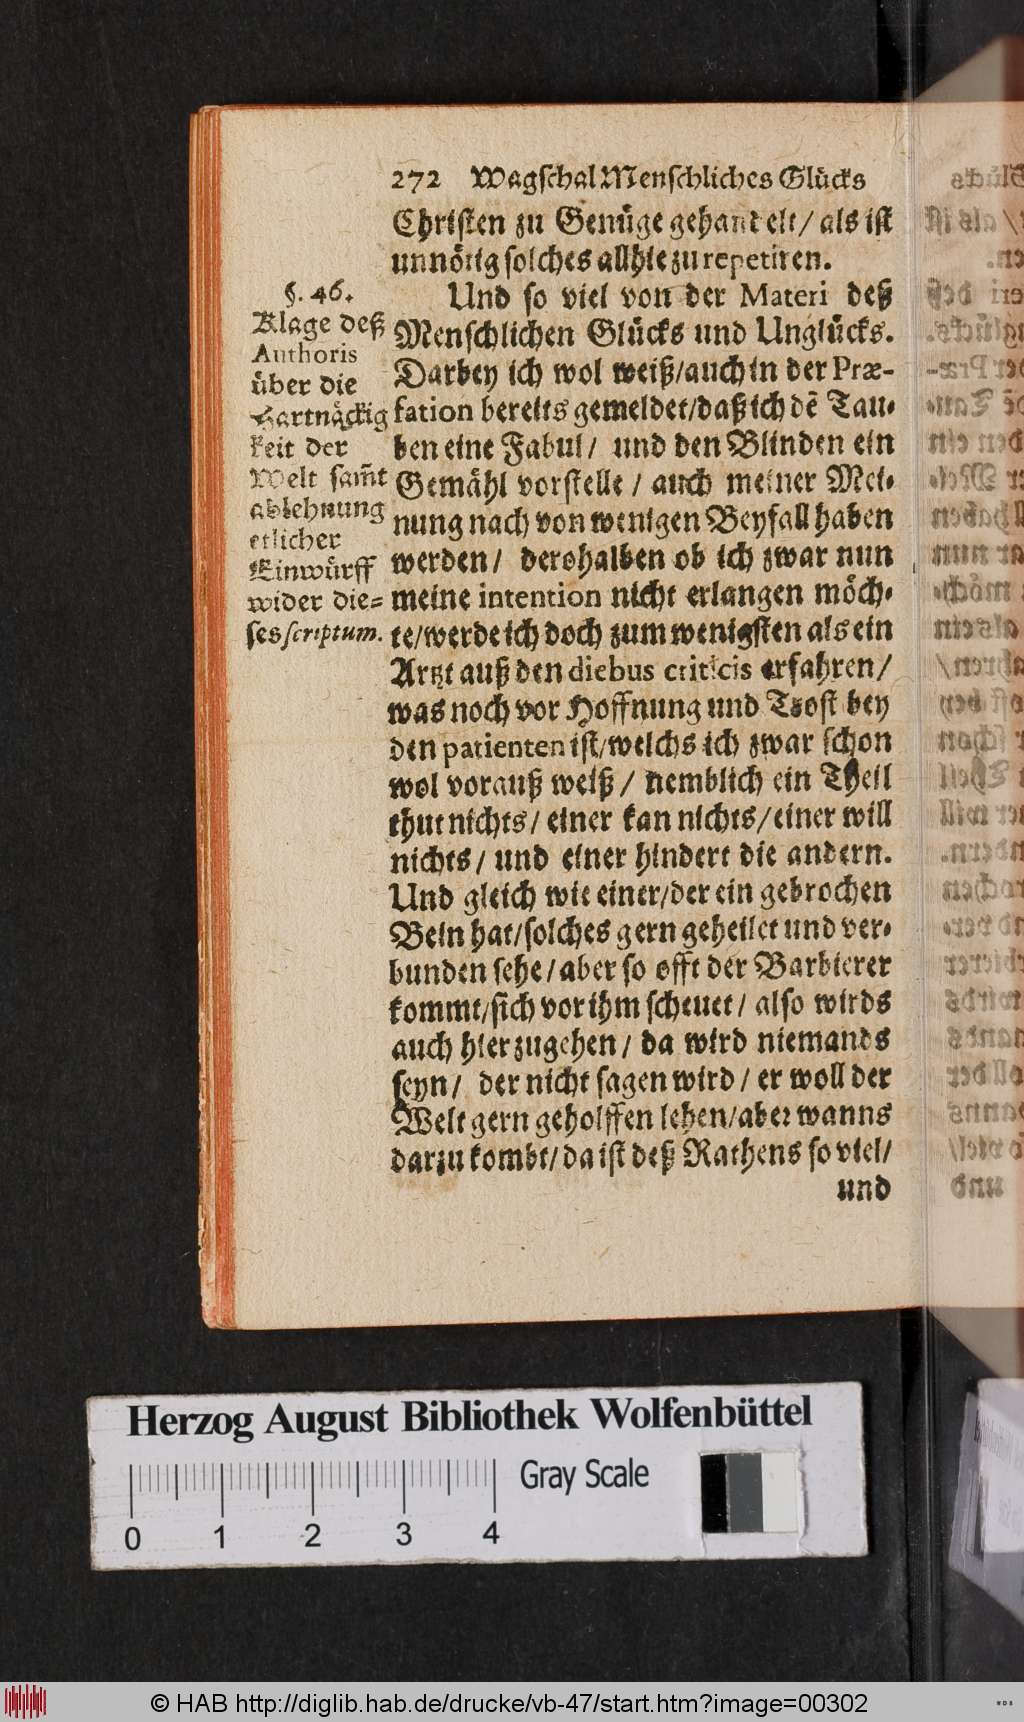 272 Wagschal Menschliches Glücks
Christen zu Genüge gehandelt/ als ist
unnötig solches allhie zu repetiren.
§. 46.
Klage deß
Authoris
über die
Hartnäckig
keit der
Welt sam̃t
ablehnung
etlicher
Einwürff
wider die=
ses scriptum.
Und so viel von der Materi deß
Menschlichen Glücks und Unglücks.
Darbey ich wol weiß/auch in der Præ-
fation bereits gemeldet/daß ich dẽ Tau-
ben eine Fabul/ und den Blinden ein
Gemähl vorstelle/ auch meiner Mei-
nung nach von wenigen Beyfall haben
werden/ derohalben ob ich zwar nun
meine intention nicht erlangen möch-
te/werde ich doch zum wenigsten als ein
Artzt auß den diebus criticis erfahren/
was noch vor Hoffnung und Trost bey
den patienten ist/welchs ich zwar schon
wol vorauß weiß/ nemblich ein Theil
thut nichts/ einer kan nichts/einer will
nichts/ und einer hindert die andern.
Und gleich wie einer/der ein gebrochen
Bein hat/solches gern geheilet und ver-
bunden sehe/aber so offt der Barbierer
kommt/sich vor ihm scheuet/ also wirds
auch hierzugehen/ da wird niemands
seyn/ der nicht sagen wird/ er woll der
Welt gern geholffen sehen/aber wanns
darzu kombt/da ist deß Rathens so viel/
und
Herzog August Bibliothek Wolfenbüttel
Gray Scale
0 1 2 3 4
© HAB http://diglib.hab.de/drucke/vb-47/start.htm?image=00302